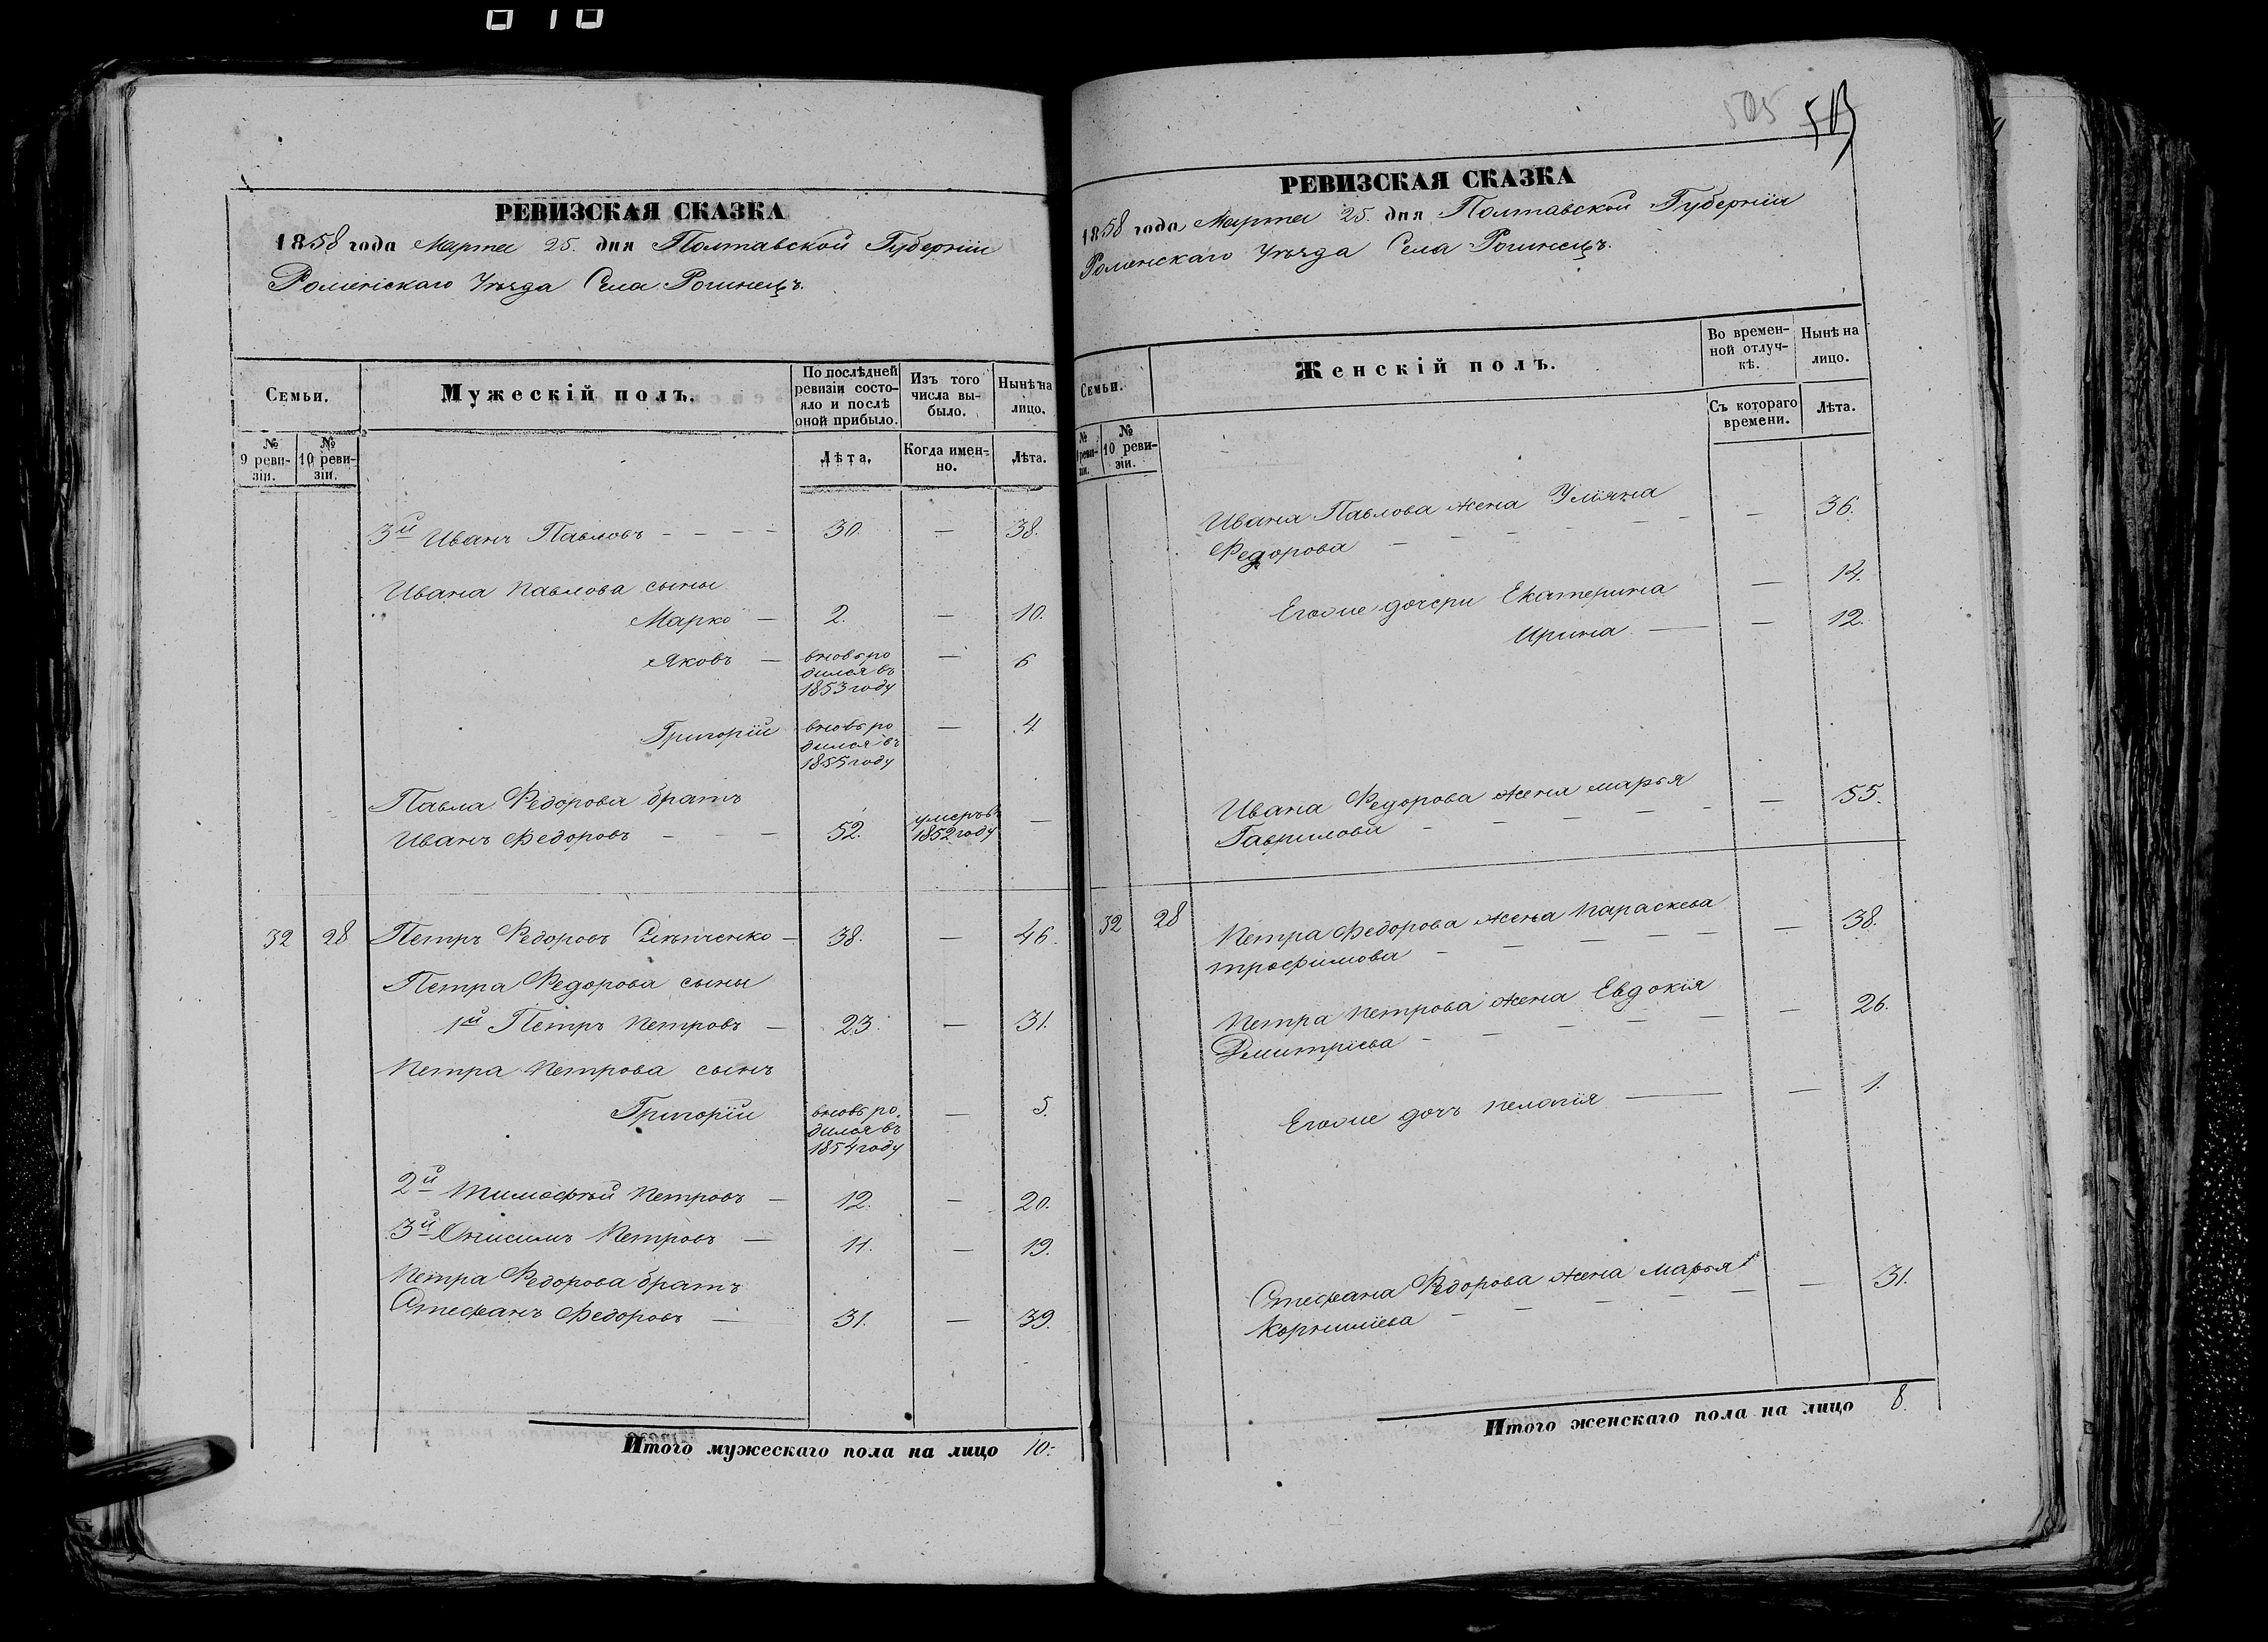 РЕВИЗСКАЯ СКАЗКА
1858 года Марта 25. дня Полтавской Губерніи
Роменскаго Уѣзда Села Рогинецъ.
Семьи.
Мужескій полъ.
По послѣдней
ревизіи состо-
яло и послѣ
оной прибыло.
Изъ того
числа вы-
было.
Нынѣ на
лицо.
№
9 реви-
зіи.
№
10 реви-
зіи.
Лѣта.
Когда имен-
но.
Лѣта.
3й Иванъ Павловъ - - - - 30. — 38.
Ивана Павлова сыны
Марко — 2. — 10.
Яковъ — вновь ро
дился въ
1853 году — 6
Григорій вновь ро
дился въ
1855 году — 4.
Павла Федорова братъ
Иванъ Федоровъ - - - 52. умеръ въ
1852 году —
32 28 Петръ Федоровъ — 38. — 46.
Петра Федорова сыны
1й Петръ Петровъ — 23. — 31.
Петра Петрова сынъ
Григорій вновь ро.
дился въ
1854 году — 5.
2й Тимофѣй Петровъ — 12. — 20.
3й Онисимъ Петровъ — 11. — 19.
Петра Федорова братъ
Стефанъ Федоровъ — 31. — 39.
Итого мужескаго пола на лицо 10.
505 513
РЕВИЗСКАЯ СКАЗКА
1858 года Марта 25. дня Полтавской Губерніи
Роменскаго Уѣзда Села Рогинецъ.
Семьи.
Женскій полъ.
Во времен-
ной отлуч-
кѣ.
Нынѣ на
лицо.
№
9 реви-
зіи.
№
10 реви-
зіи.
Съ котораго
времени.
Лѣта.
Ивана Павлова жена Уліяна
Федорова - - - - - - — 36.
Егоже дочери Екатерина — 14.
Ирина — — 12.
Ивана Федорова жена марья
Гаврилова - - - - - — 55.
32 28 Петра Федорова жена Параскева
трофимова - - - - - — 38.
Петра Петрова жена Евдокія
Дмитріева - - - - - — 26.
Егоже дочъ пелагія — — 1.
Стефана Федорова жена Марья
Корнилиева - - - - - — 31.
Итого женскаго пола на лицо 8.